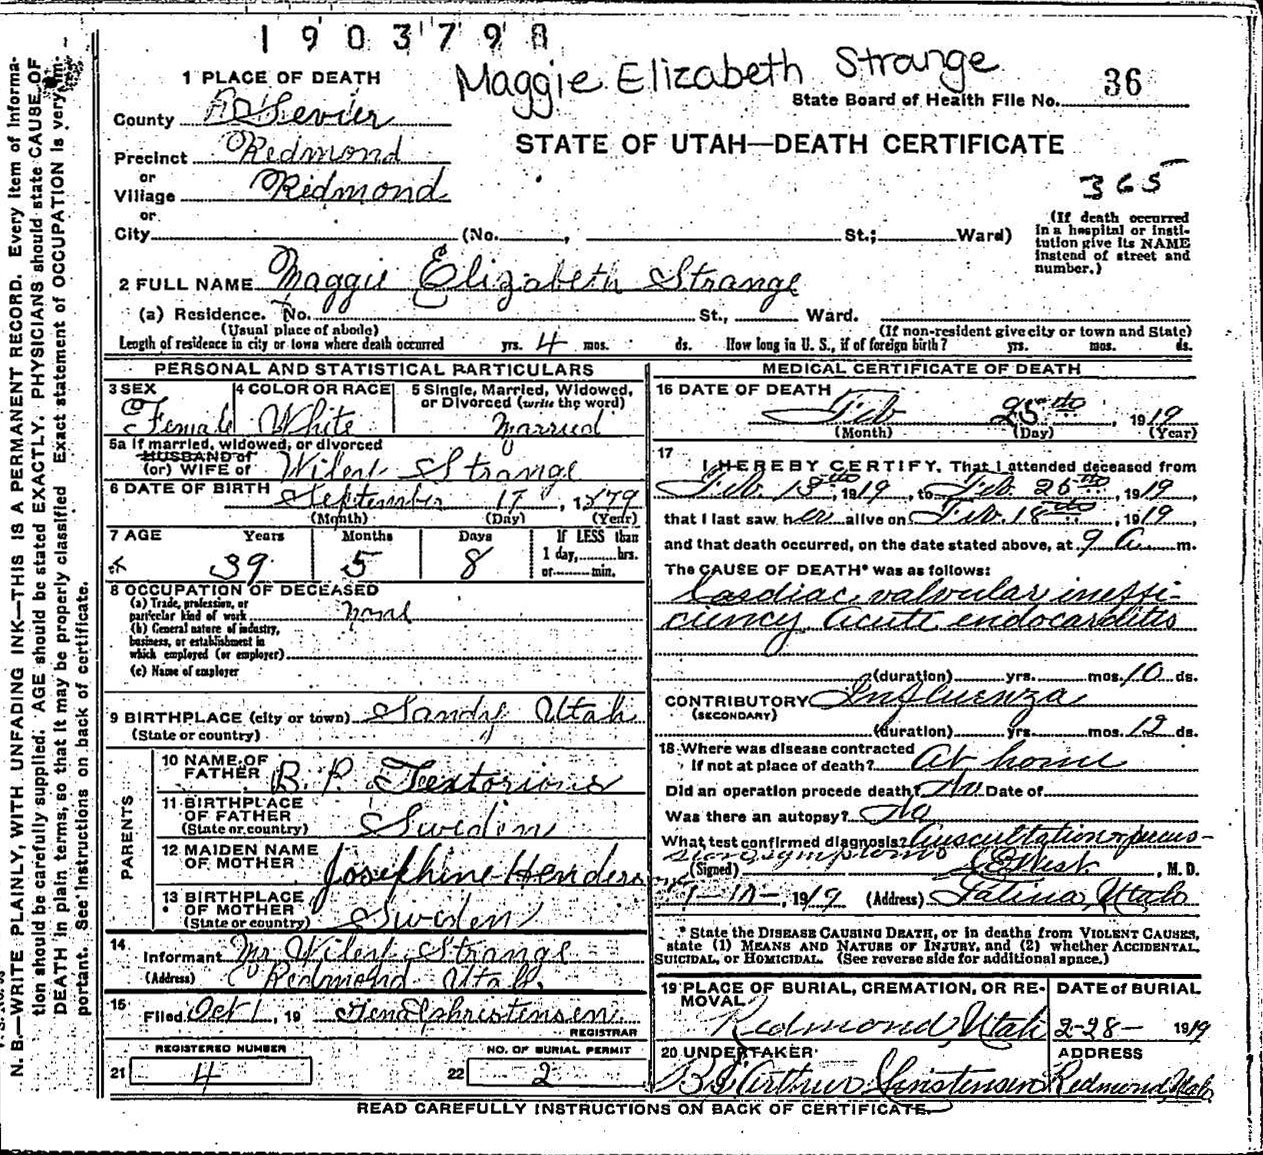 1903798
Maggie Elizabeth Strange
36
State Board of Health File No.
1 PLACE OF DEATH
County Sevier
STATE OF UTAH—DEATH CERTIFICATE
Precinct Redmond
or
Village Redmond
365
or
City (No. , St.; Ward)
(If death occurred
in a hospital or insti-
tution give its NAME
instead of street and
number.)
2 FULL NAME Maggie Elizabeth Strange
(a) Residence. No. St., Ward.
(Usual place of abode) (If non-resident give city or town and State)
Length of residence in city or town where death occurred yrs. 4 mos. ds. How long in U. S., if of foreign birth? yrs. mos. ds.
PERSONAL AND STATISTICAL PARTICULARS
3 SEX
Female
4 COLOR OR RACE
White
5 Single, Married, Widowed,
or Divorced (write the word)
Married
5a If married, widowed, or divorced
HUSBAND of
(or) WIFE of Strange
6 DATE OF BIRTH September 17, 1879
(Month) (Day) (Year)
7 AGE Years Months Days If LESS than
1 day, hrs.
39 5 8 or min.
8 OCCUPATION OF DECEASED
(a) Trade, profession, or
particular kind of work none
(b) General nature of industry,
business, or establishment in
which employed (or employer)
(c) Name of employer
9 BIRTHPLACE (city or town) Sandy Utah
(State or country)
PARENTS
10 NAME OF
FATHER B. P. Textorious
11 BIRTHPLACE
OF FATHER
(State or country) Sweden
12 MAIDEN NAME
OF MOTHER Josephine
13 BIRTHPLACE
OF MOTHER
(State or country) Sweden
14
Informant Mr Strange
(Address) Redmond Utah.
15
Filed Oct 1, 19 Christensen
REGISTRAR
REGISTERED NUMBER NO. OF BURIAL PERMIT
21 4 22 2
MEDICAL CERTIFICATE OF DEATH
16 DATE OF DEATH
Feb 25th, 1919
(Month) (Day) (Year)
17
I HEREBY CERTIFY, That I attended deceased from
Feb. 1919, to Feb. 1919,
that I last saw her alive on Feb. 18th, 1919,
and that death occurred, on the date stated above, at 9 a m.
The CAUSE OF DEATH* was as follows:
Cardiac valvular ineffi-
ciency acute endocarditis
(duration) yrs. mos. 10 ds.
CONTRIBUTORY Influenza
(SECONDARY)
(duration) yrs. mos. 12 ds.
18 Where was disease contracted
If not at place of death? At home
Did an operation precede death? No Date of
Was there an autopsy? No
What test confirmed diagnosis? Auscultation percus-
sion symptoms
(Signed) West, M. D.
1919 (Address) Salina, Utah
* State the DISEASE CAUSING DEATH, or in deaths from VIOLENT CAUSES,
state (1) MEANS AND NATURE OF INJURY, and (2) whether ACCIDENTAL,
SUICIDAL, or HOMICIDAL. (See reverse side for additional space.)
19 PLACE OF BURIAL, CREMATION, OR RE-
MOVAL
Redmond, Utah
DATE of BURIAL
2-28- 1919
20 UNDERTAKER
Arthur Christensen
ADDRESS
Redmond, Utah
READ CAREFULLY INSTRUCTIONS ON BACK OF CERTIFICATE.
N. B.—WRITE PLAINLY, WITH UNFADING INK—THIS IS A PERMANENT RECORD. Every item of informa-
tion should be carefully supplied. AGE should be stated EXACTLY. PHYSICIANS should state CAUSE OF
DEATH in plain terms, so that it may be properly classified. Exact statement of OCCUPATION is very im-
portant. See instructions on back of certificate.